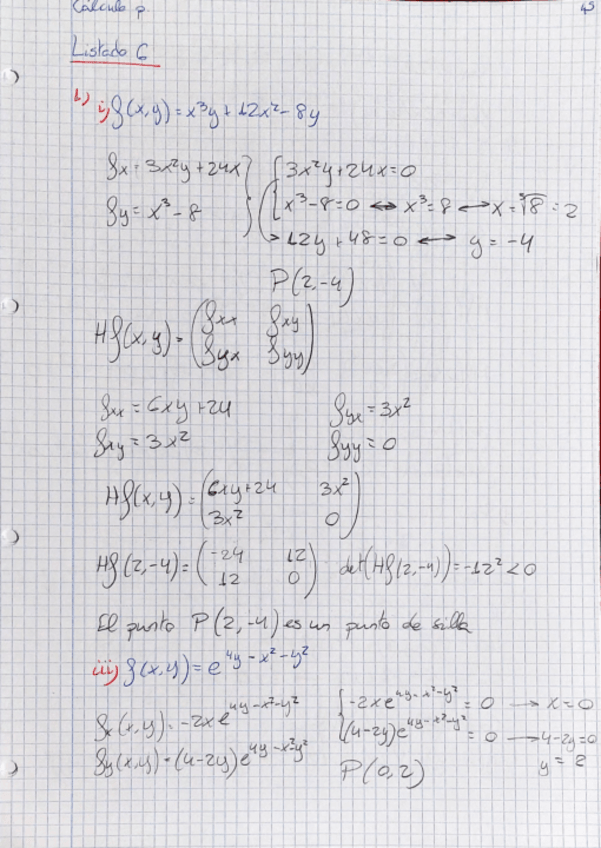 Cálculo p.
Listado 6
1) i) f(x,y) = x³y + 12x² - 8y
fx = 3x²y + 24x } { 3x²y + 24x = 0
fy = x³ - 8 } { x³ - 8 = 0 ↔ x³ = 8 ↔ x = ∛8 = 2
→ 12y + 48 = 0 ↔ y = -4
P(2,-4)
Hf(x,y) = ( fxx fxy
fyx fyy )
fxx = 6xy + 24 fyx = 3x²
fxy = 3x² fyy = 0
Hf(x,y) = ( 6xy+24 3x²
3x² 0 )
Hf(2,-4) = ( -24 12
12 0 ) det(Hf(2,-4)) = -12² < 0
El punto P(2,-4) es un punto de silla
iii) f(x,y) = e^(4y - x² - y²)
fx(x,y) = -2xe^(4y-x²-y²) { -2xe^(4y-x²-y²) = 0 → x = 0
fy(x,y) = (4-2y)e^(4y-x²-y²) { (4-2y)e^(4y-x²-y²) = 0 → 4-2y=0
P(0,2) y = 2